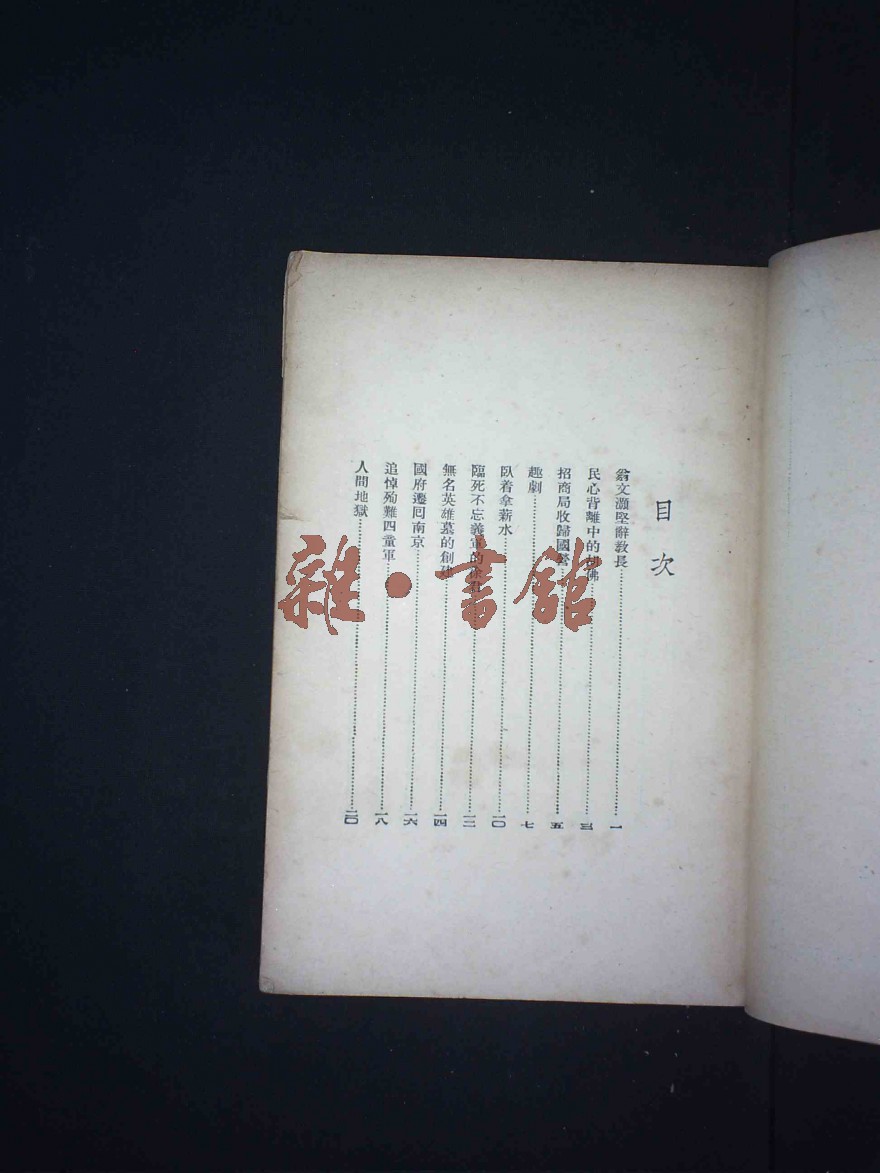 目次
翁文灝堅辭教長……一
民心背離中的胡佛……三
招商局收歸國營……五
趣劇……七
臥着拿薪水……一〇
臨死不忘義軍的徐……一二
無名英雄墓的創建……一四
國府遷囘南京……一六
追悼殉難四童軍……一八
人間地獄……二〇
雜·書館